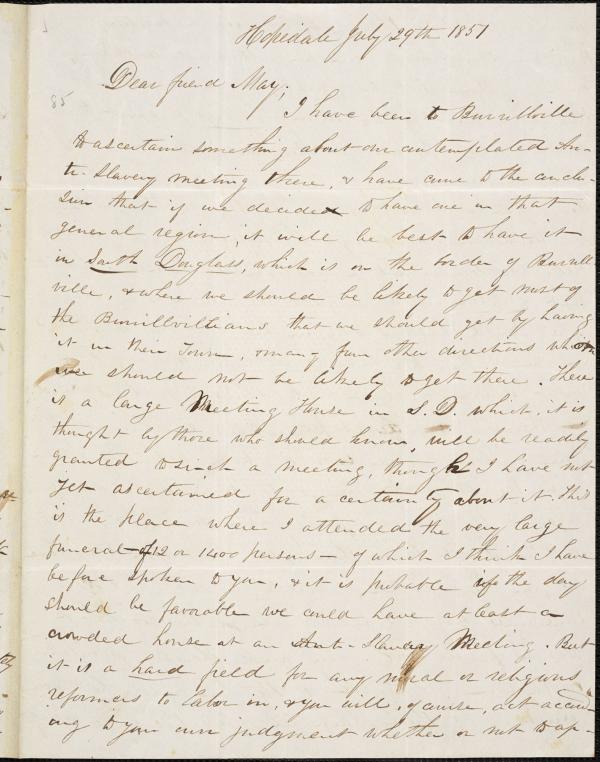 Hopedale July 29th 1851
Dear friend May,
85
I have been to Burrillville
to ascertain something about our contemplated An-
ti-Slavery meeting there, & have come to the conclu-
sion that if we decided to have one in that
general region, it will be best to have it
in South Douglass, which is on the border of Burrill-
ville, & where we should be likely to get most of
the Burrillvillians that we should get by having
it in their Town, & many from other directions whom
we should not be likely to get there. There
is a large Meeting House in S. D. which, it is
thought by those who should know, will be readily
granted to us for such a meeting, though I have not
yet ascertained for a certainty about it. This
is the place where I attended the very large
funeral of 12 or 1400 persons - of which I think I have
before spoken to you, & it is probable if the day
should be favorable we could have at least a
crowded house at an Anti-Slavery Meeting. But
it is a hard field for any moral or religious
reformers to labor in, & you will, of course, act accord-
ing to your own judgment whether or not to ap-